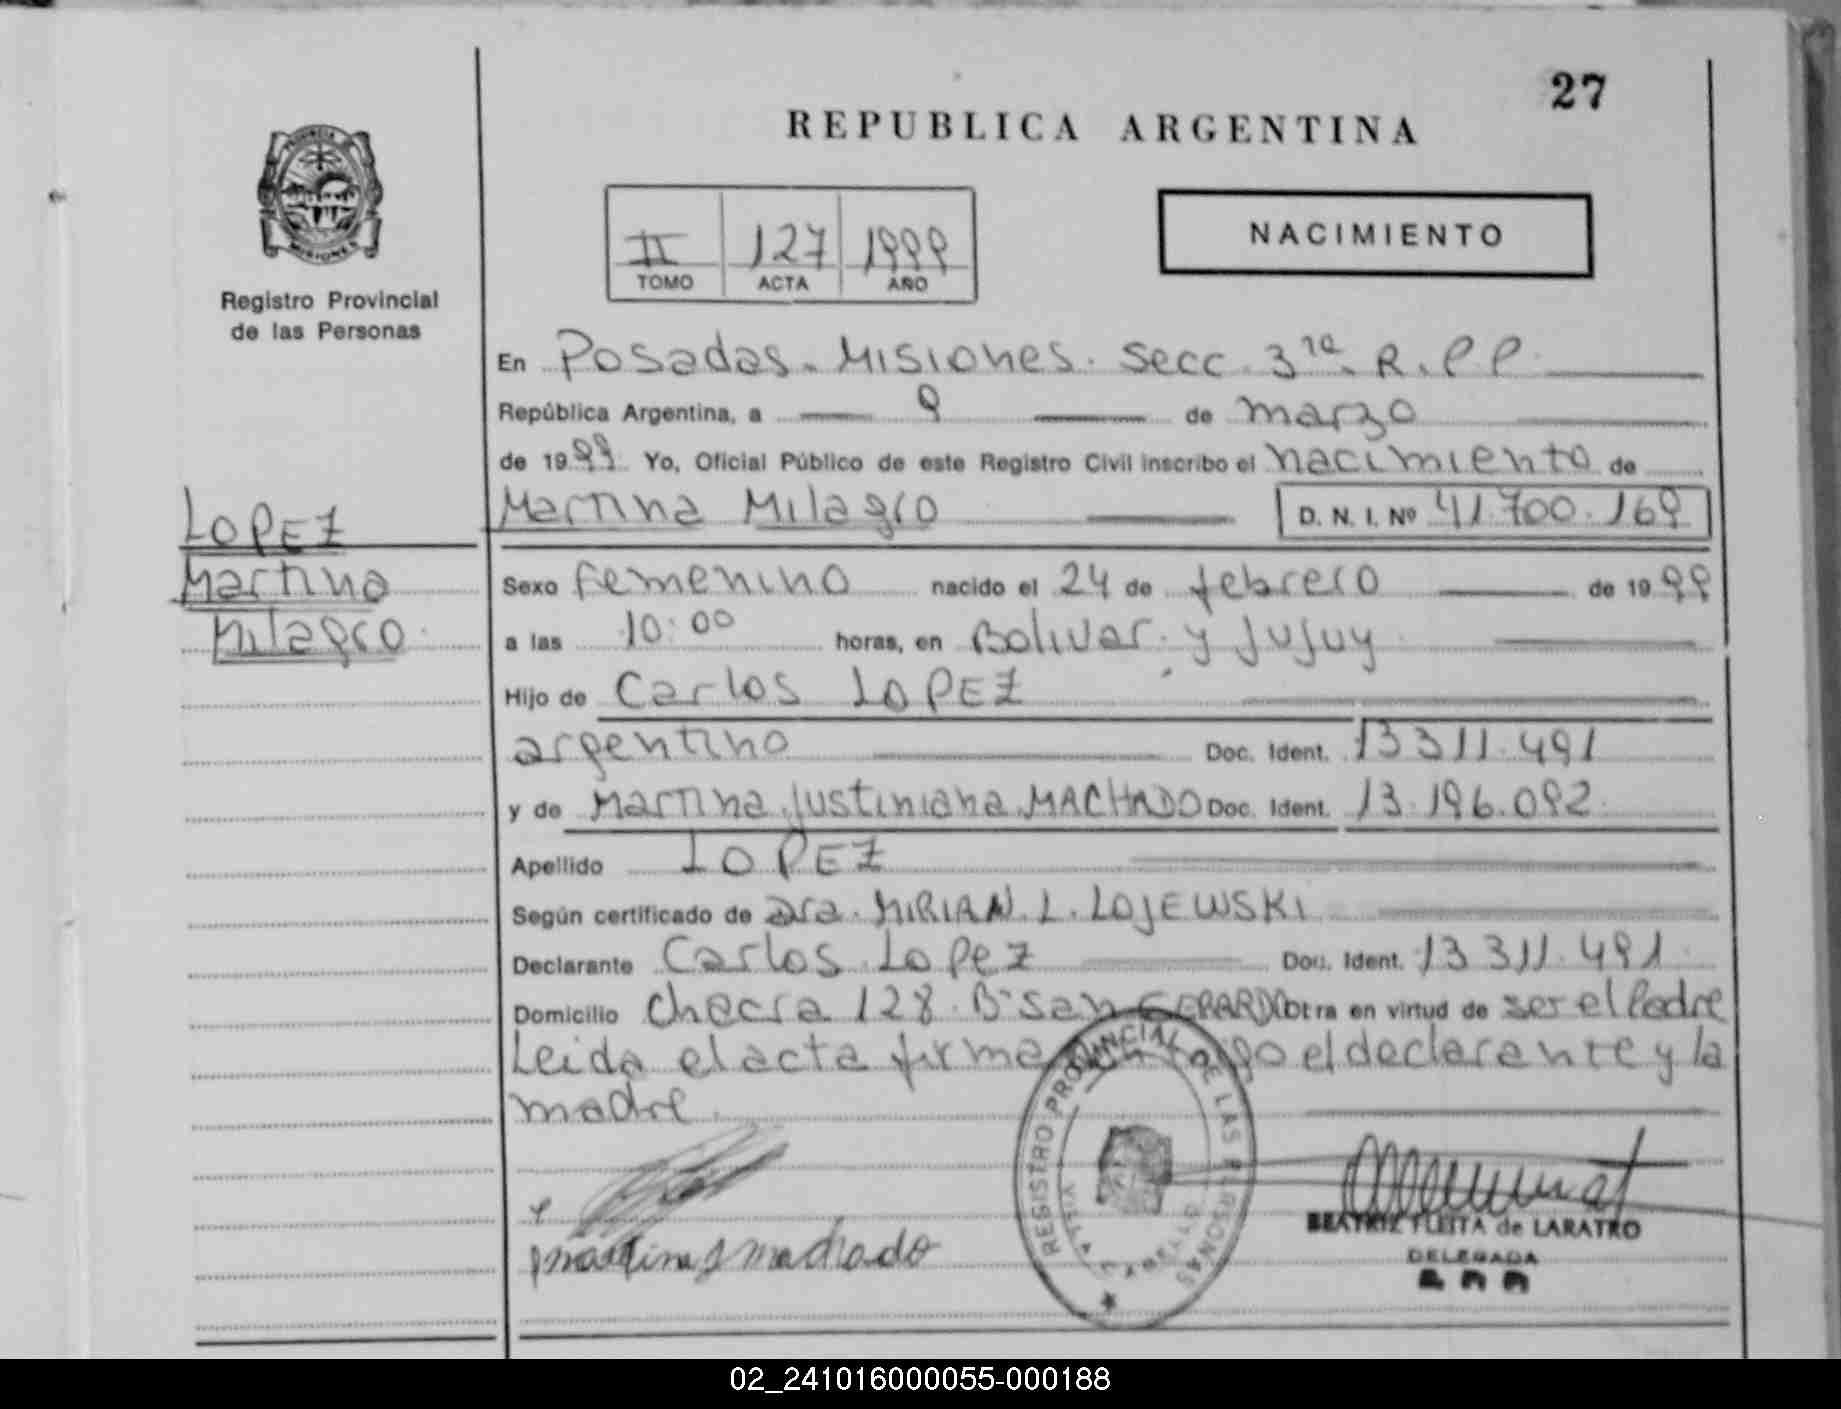 27
REPUBLICA ARGENTINA
PROVINCIA
MISIONES
Registro Provincial
de las Personas
II 127 1999
TOMO ACTA AÑO
NACIMIENTO
En Posadas. Misiones. Secc. 3ra. R.P.P.
República Argentina, a 9 de marzo
de 1999 Yo, Oficial Público de este Registro Civil inscribo el nacimiento de
Martina Milagro D. N. I. Nº 41.700.169
LOPEZ
Martina
Milagro
Sexo femenino nacido el 24 de febrero de 1999
a las 10:00 horas, en Bolivar y Jujuy
Hijo de Carlos LOPEZ
argentino Doc. Ident. 13311.491
y de Martina Justiniana MACHADO Doc. Ident. 13.196.092
Apellido LOPEZ
Según certificado de Dra. MIRIAN L. LOJEWSKI
Declarante Carlos Lopez Doc. Ident. 13311.491
Domicilio Chacra 128. Bº San GERARDO Obra en virtud de ser el Padre
Leida el acta firma el declarante y la
madre.
Martina J Machado
REGISTRO PROVINCIAL DE LAS PERSONAS
BEATRIZ FLEITA de LARATRO
DELEGADA
02_241016000055-000188